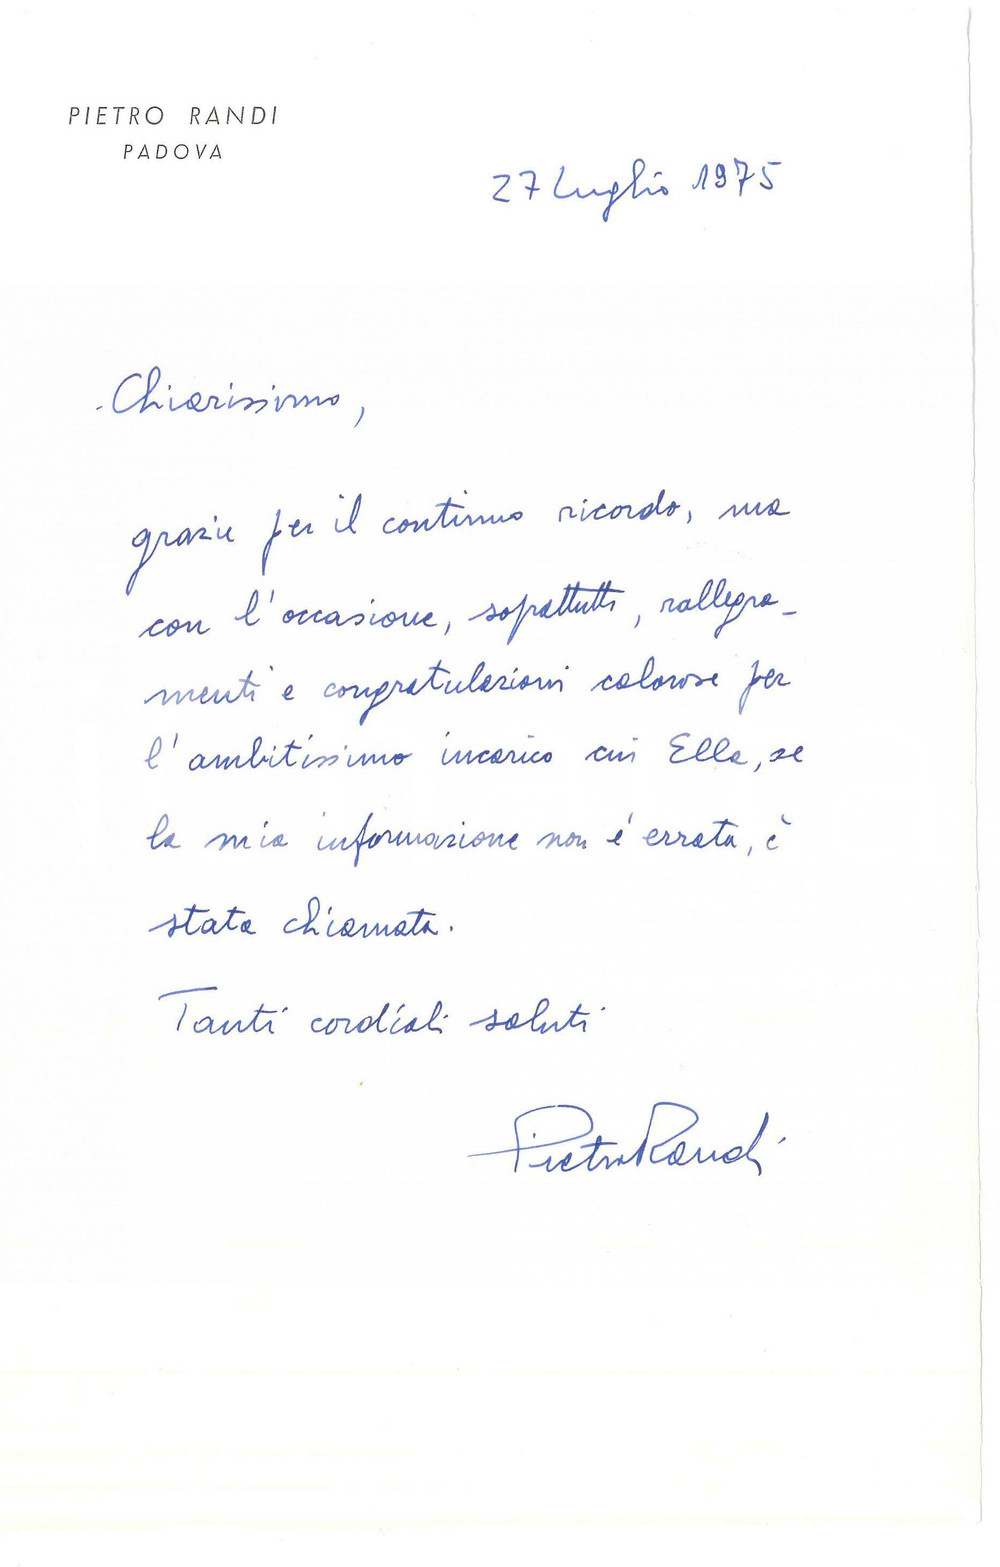 PIETRO RANDI
PADOVA
27 Luglio 1975
Chiarissimo,
grazie per il continuo ricordo, ma
con l'occasione, soprattutto, rallegra-
menti e congratulazioni calorose per
l'ambitissimo incarico cui Ella, se
la mia informazione non é errata, è
stata chiamata.
Tanti cordiali saluti
Pietro Randi